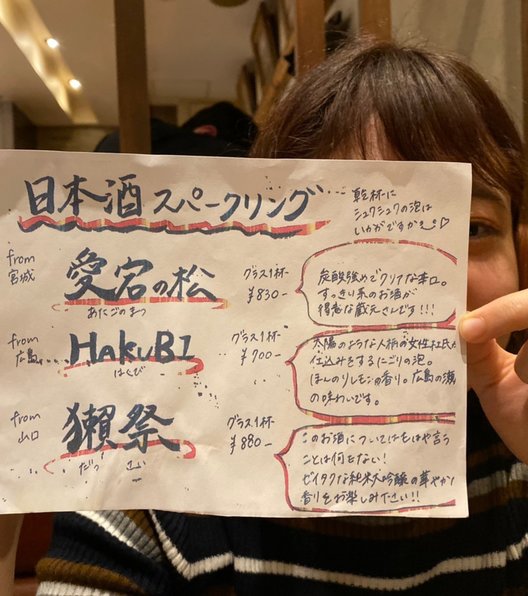 日本酒スパークリング
乾杯に
シュワシュワの泡は
いかがですか♡
from
宮城
愛宕の松
あたごのまつ
グラス1杯
¥830-
炭酸強めでクリアな辛口。
すっきり系のお酒が
得意な蔵元さんです!!!
from
広島
HAKUBI
はくび
グラス1杯
¥700-
太陽のような人柄の女性杜氏が
仕込みをするにごりの泡。
ほんのりレモンの香り。広島の瀬
の味わいです。
from
山口
獺祭
だっさい
グラス1杯
¥880-
このお酒についてはもはや言う
ことは何もない!
ゼイタクな純米大吟醸の華やかな
香りをお楽しみ下さい!!